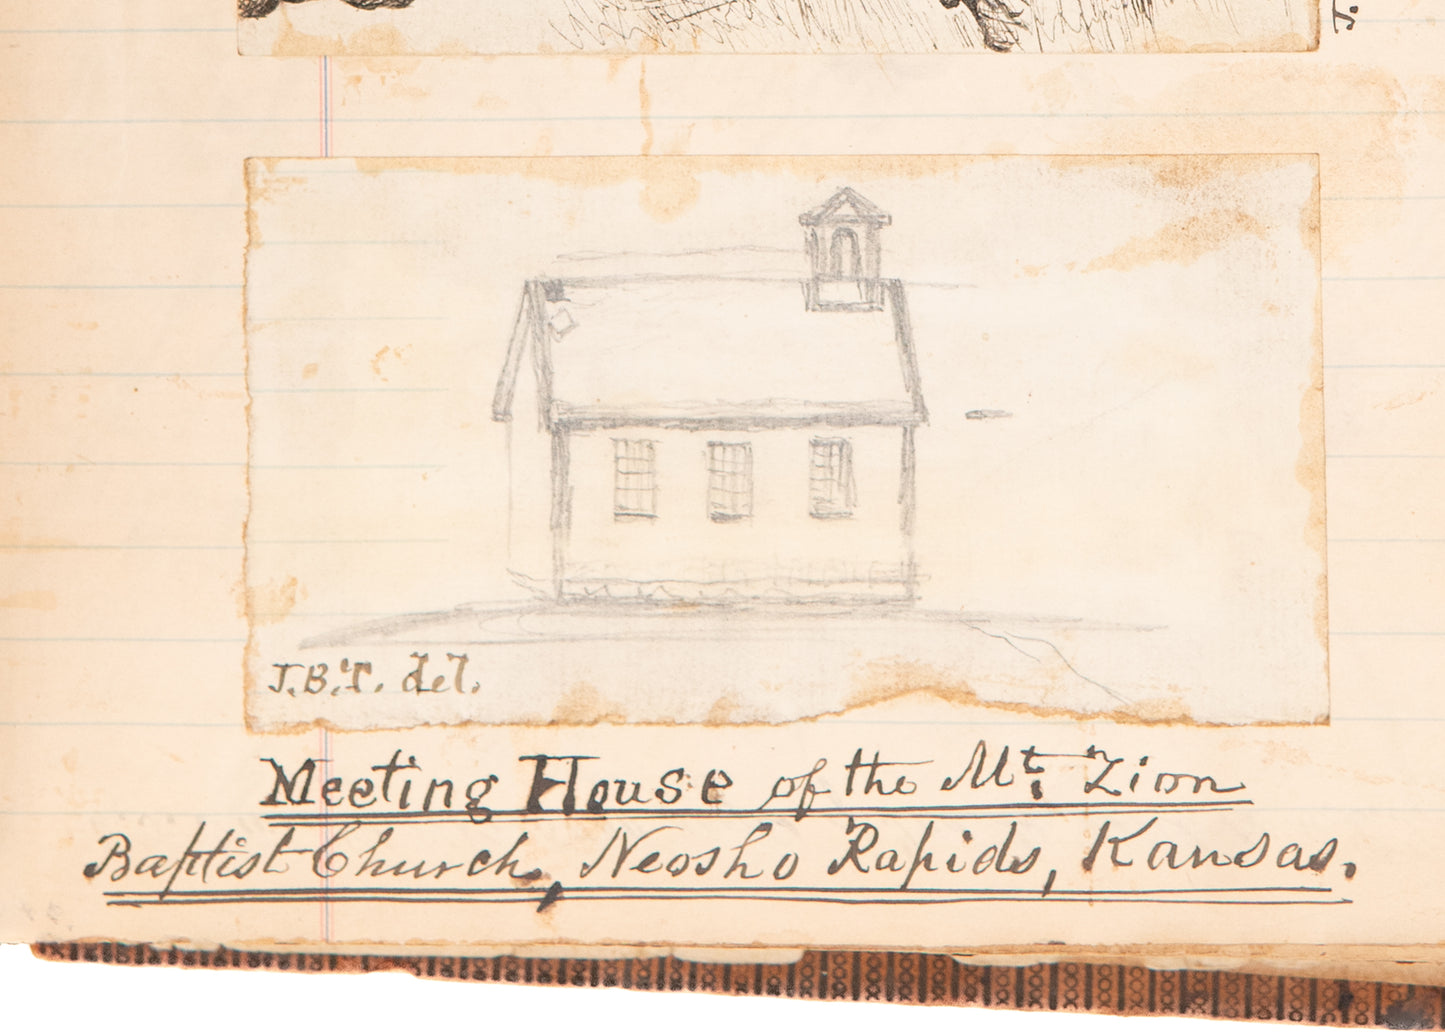 J.
J.B.T. del.
Meeting House of the Mt. Zion
Baptist Church, Neosho Rapids, Kansas.